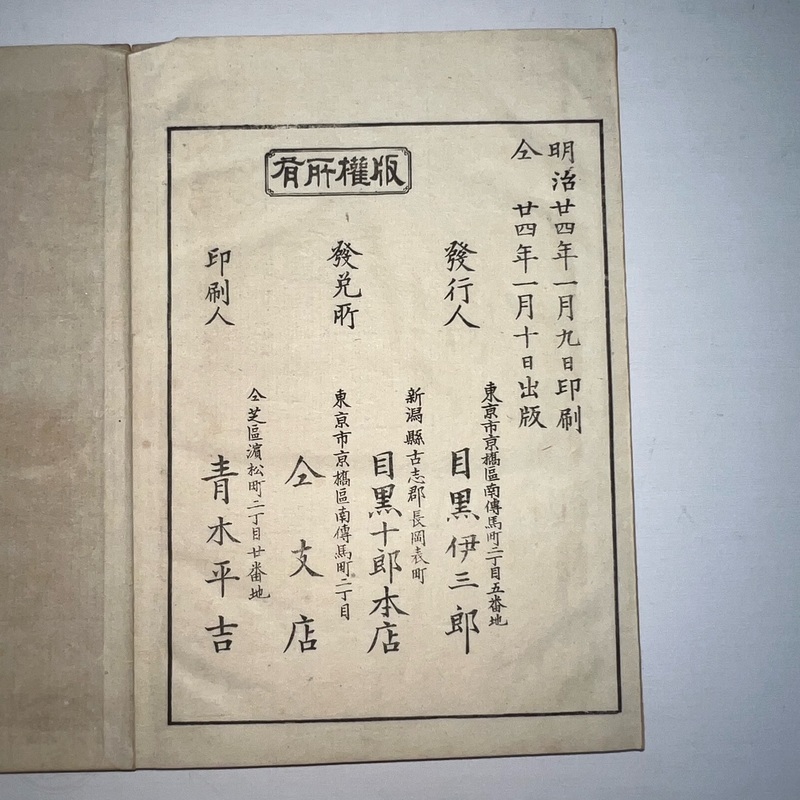 明治廿四年一月九日印刷
仝廿四年一月十日出版
版權所有
東京市京橋區南傳馬町二丁目五番地
發行人 目黒伊三郎
新潟縣古志郡長岡表町
目黒十郎本店
發兌所
東京市京橋區南傳馬町二丁目
仝支店
仝芝區濱松町二丁目廿番地
印刷人 青木平吉